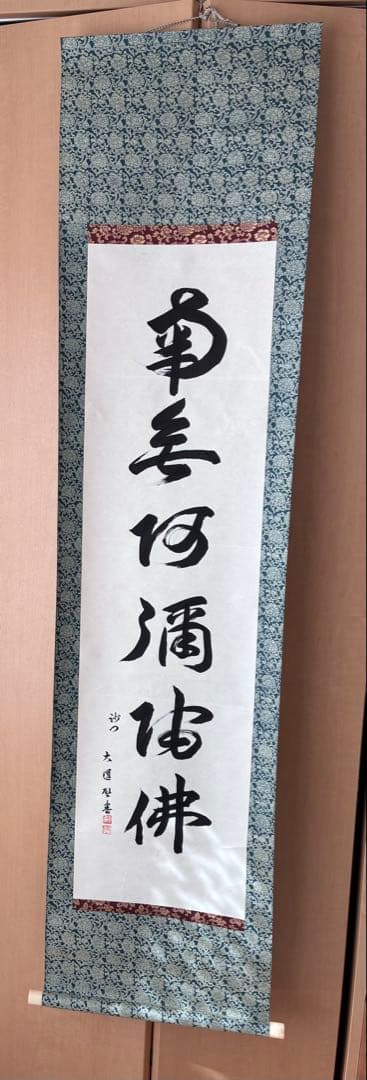 南無阿彌陀佛
沙門 大道